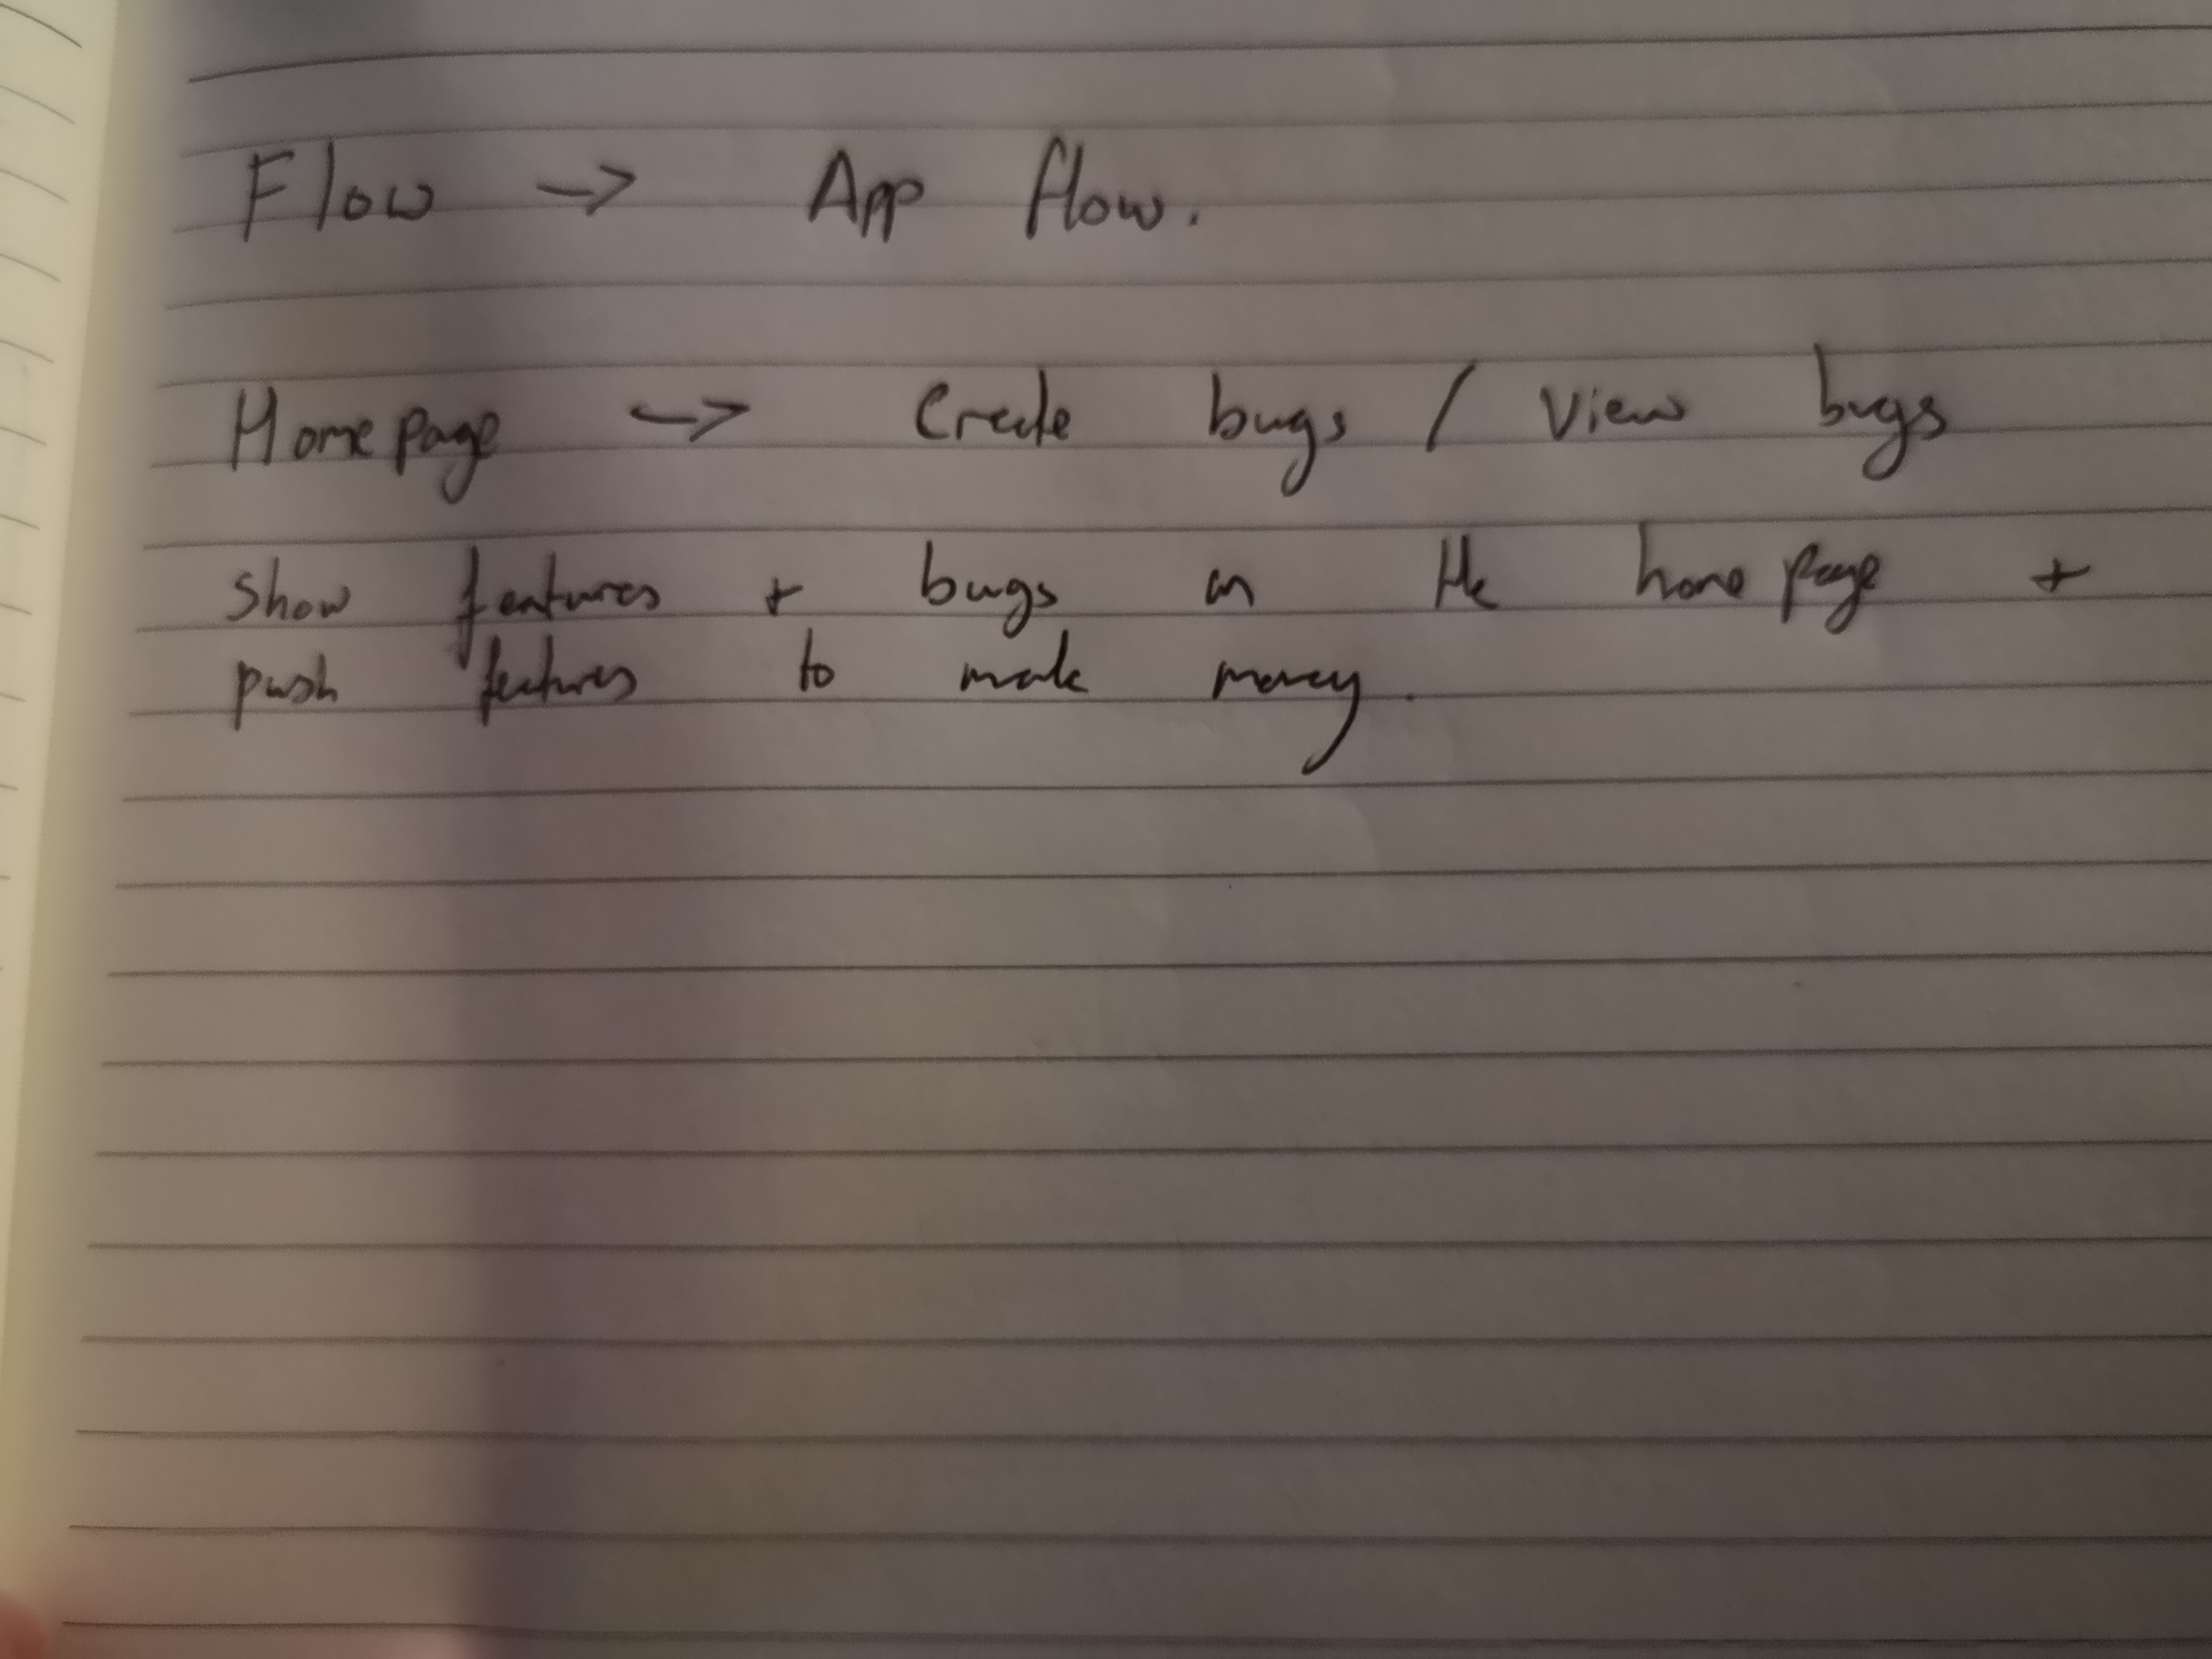 Flow -> App flow.
Home page -> Create bugs / View bugs
Show features + bugs on the home page +
push features to make money.